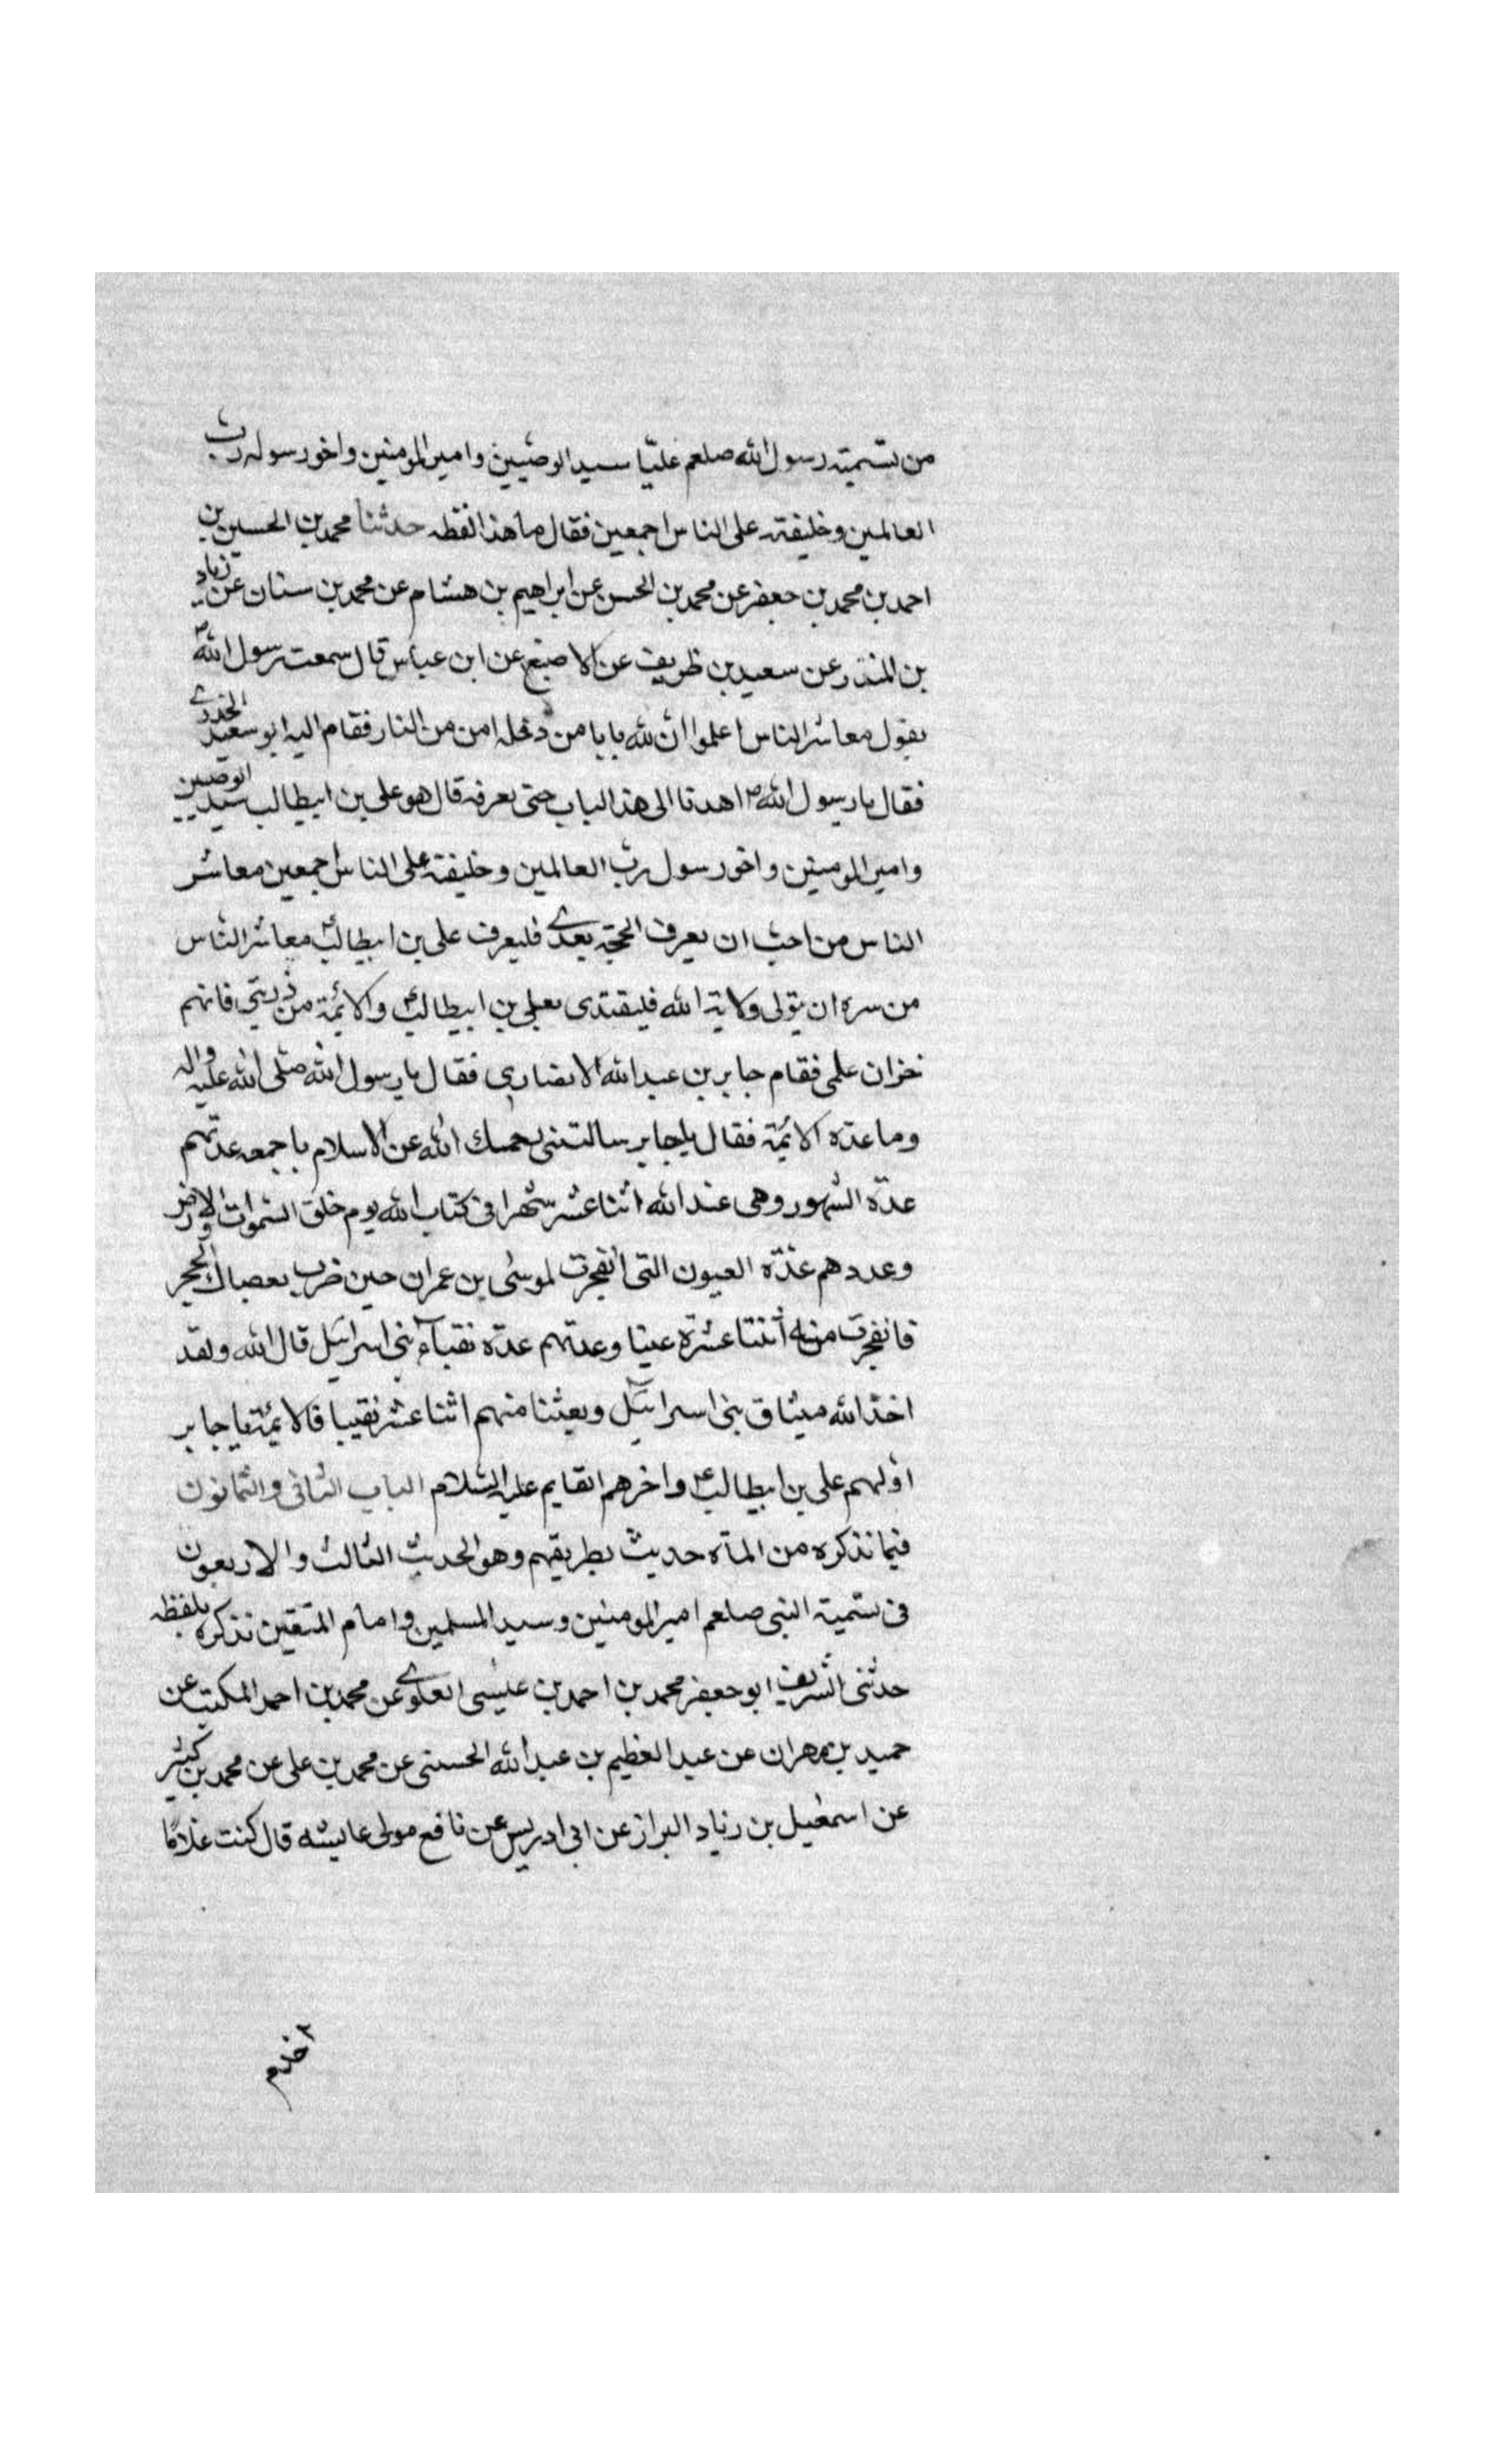 من تسمية رسول الله صلعم عليّا سيد الوصيين وامير المومنين واخو رسوله ربّ
العالمين وخليفته على الناس اجمعين فقال ما هذا لفظه حدثنا محمد بن الحسين بن
احمد بن محمد بن جعفر عن محمد بن الحسن عن ابراهيم بن هشام عن محمد بن سنان عن زياد
بن المنذر عن سعيد بن ظريف عن الاصبغ عن ابن عباس قال سمعت رسول الله ص
يقول معاشر الناس اعلموا ان لله بابا من دخله امن من النار فقام اليه ابو سعيد الخدرى
فقال يا رسول الله ص اهدنا الى هذا الباب حتى نعرفه قال هو على بن ابيطالب سيد الوصيين
وامير المومنين واخو رسول ربّ العالمين وخليفته على الناس اجمعين معاشر
الناس من احبّ ان يعرف الحجة بعدى فليعرف على بن ابيطالب ع معاشر الناس
من سره ان يتولى ولاية الله فليقتدى بعلى بن ابيطالب ع والائمة من ذريتى فانهم
خزان علمى فقام جابر بن عبد الله الانصارى فقال يا رسول الله صلى الله عليه واله
وما عدة الائمة فقال يا جابر سالتنى رحمك الله عن الاسلام باجمعه عدتهم
عدّة الشهور وهى عند الله اثنا عشر شهرا فى كتاب الله يوم خلق السموات والارض
وعددهم عدّة العيون التى انفجرت لموسى بن عمران حين ضرب بعصاك الحجر
فانفجرت منه اثنتا عشرة عينا وعدتهم عدّة نقباء بنى اسرائيل قال الله ولقد
اخذ الله ميثاق بنى اسرائيل وبعثنا منهم اثنا عشر نقيبا فالائمة يا جابر
اولهم على بن ابيطالب ع واخرهم القايم عليه السّلام الباب الثانى والثمانون
فيما نذكره من المأة حديث بطريقهم وهو الحديث الثالث والاربعون
فى تسمية النبى صلعم امير المومنين وسيد المسلمين وامام المتقين نذكره بلفظه
حدثنى الشريف ابو جعفر محمد بن احمد بن عيسى العلوى عن محمد بن احمد المكتب عن
حميد بن مهران عن عبد العظيم بن عبد الله الحسنى عن محمد بن على عن محمد بن كثير
عن اسمعيل بن زياد البزاز عن ابى ادريس عن نافع مولى عايشه قال كنت غلامًا
اخدم